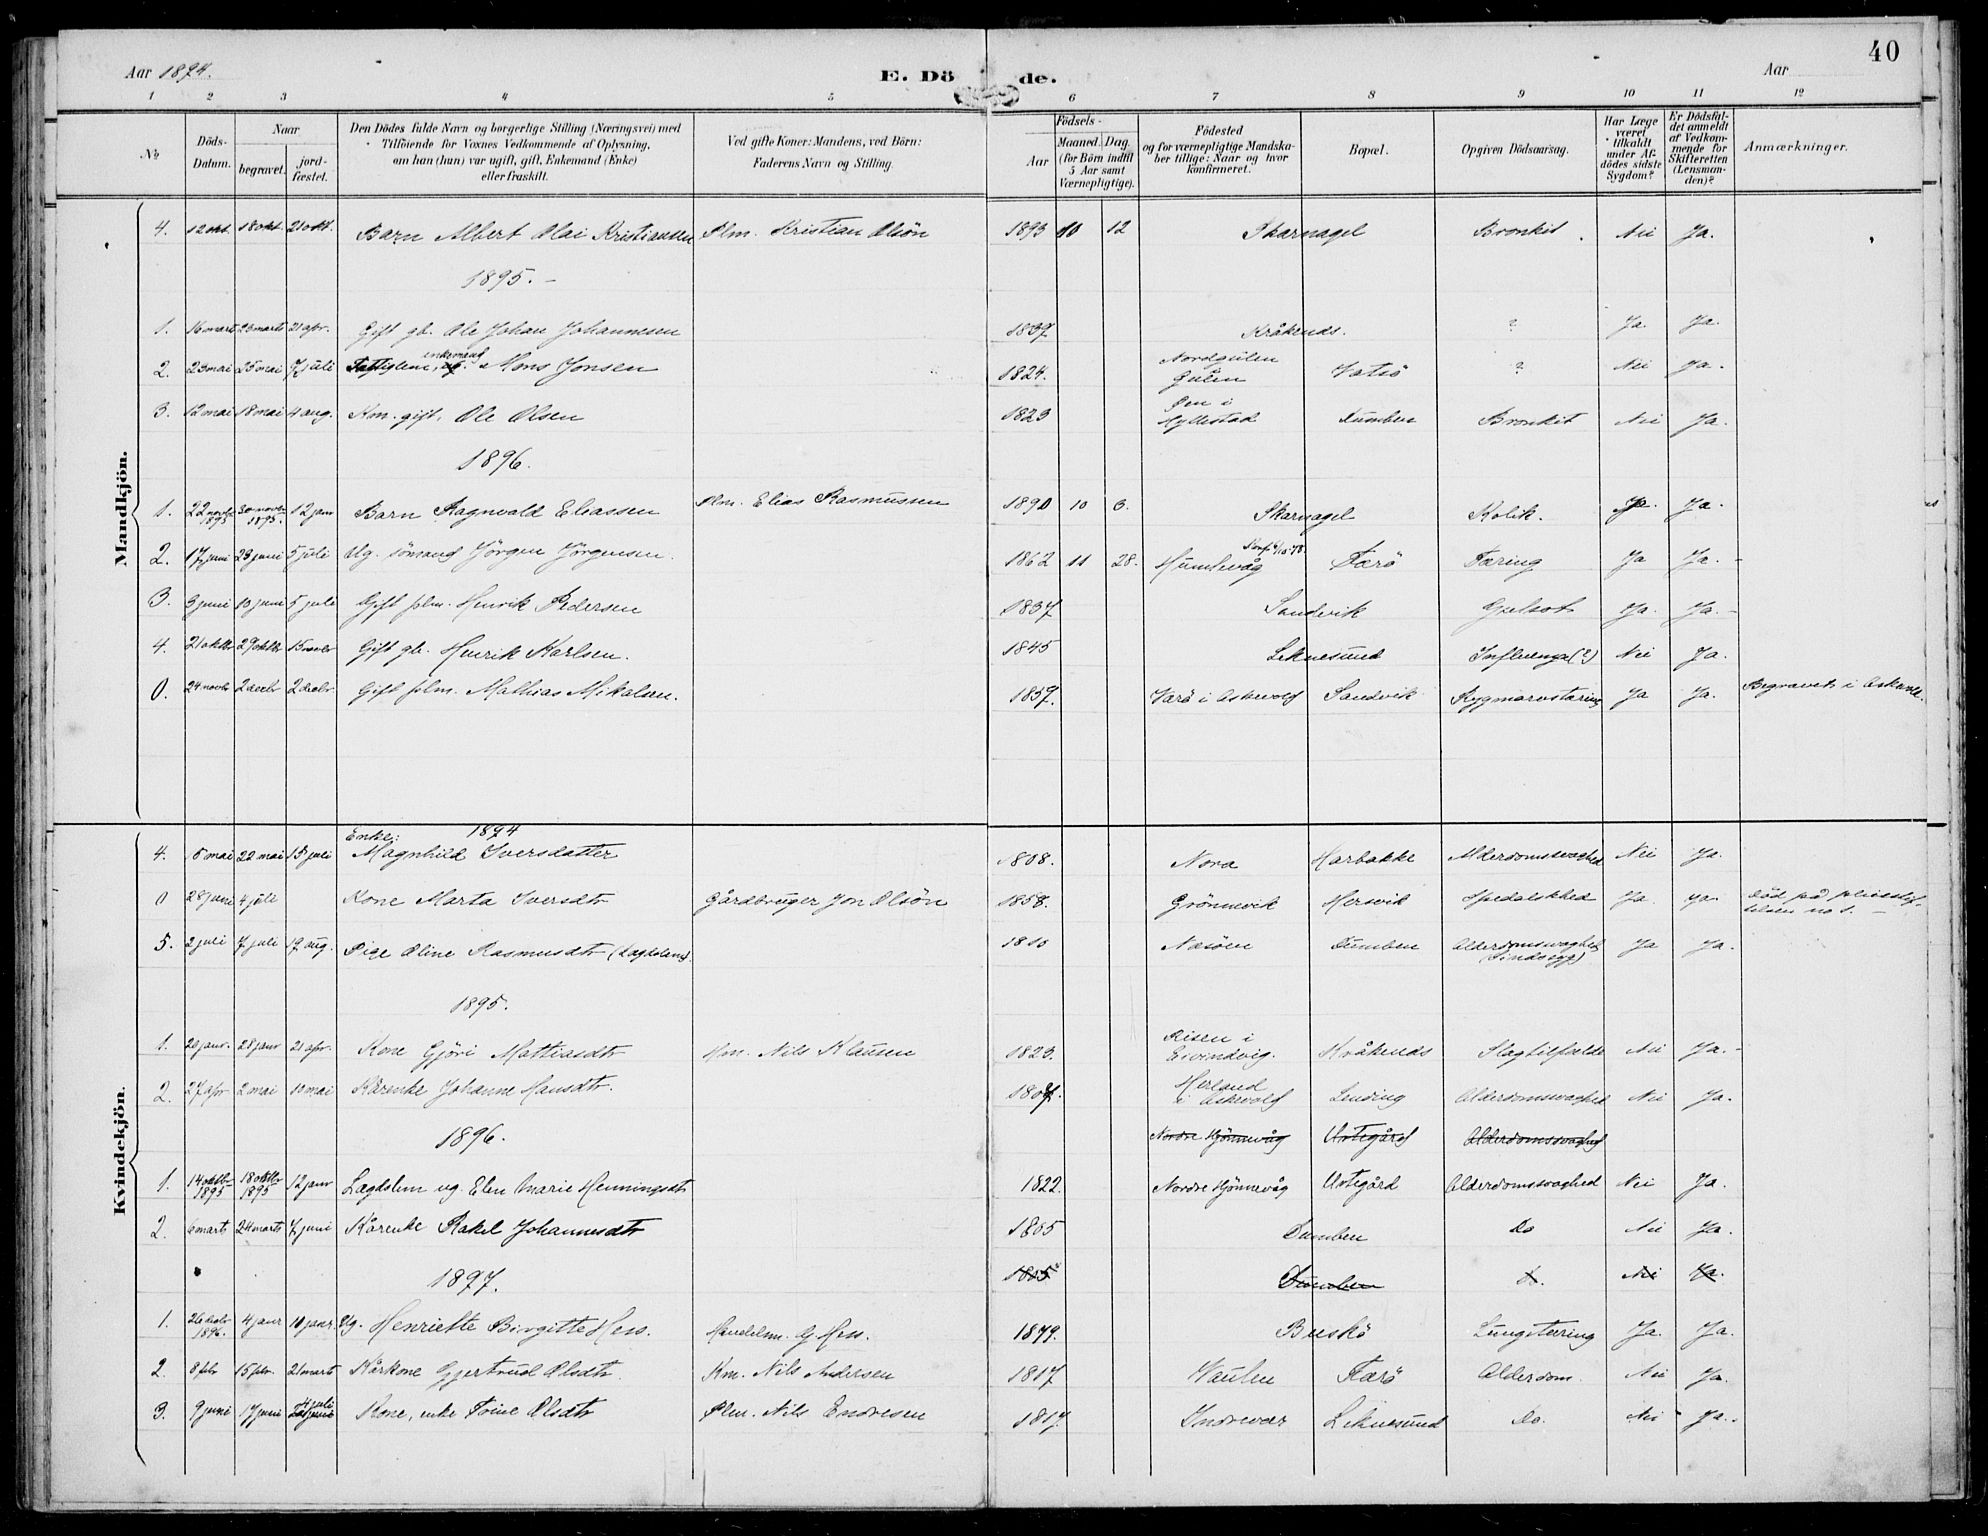 40
Aar 1894.
E. Dö de.
Aar
1 2 3 4 5 6 7 8 9 10 11 12
No
Döds-Datum.
Naar
begravet.
jord-fæstet.
Den Dödes fulde Navn og borgerlige Stilling (Næringsvei) med
Tilföiende for Voxnes Vedkommende af Oplysning,
om han (hun) var ugift, gift, Enkemand (Enke)
eller fraskilt.
Ved gifte Koner: Mandens, ved Börn:
Faderens Navn og Stilling.
Födsels-
Aar
Maaned. Dag.
(for Börn indtil
5 Aar samt
Værnepligtige).
Födested
og for værnepligtige Mandska-
ber tillige: Naar og hvor
konfirmeret.
Bopæl.
Opgiven Dödsaarsag.
Har Læge
været
tilkaldt
under Af-
dödes sidste
Sygdom?
Er Dödsfal-
det anmeldt
af Vedkom-
mende for
Skifteretten
(Lensman-
den)?
Anmærkninger.
Mandkjön.
4. 12 okt. 18 okt. 21 okt. Barn Albert Olai Kristiansen Plm. Kristian Olsön 1893 10 12 Skarnagel Bronkit. Nei Ja.
1895.
1. 16 marts 23 marts 21 apr. Gift gb. Ole Johan Johannesen 1837 Kråkends. ? Ja Ja.
2. 23 mai 25 mai 7 juli enkemand Mons Jonsen 1824. Nordgulen Gulen Vatsö ? Nei Ja.
3. 12 mai 18 mai 4 aug. Km. gift, Ole Olsen 1823 Øen i Hyllestad Dumben Bronkit Nei Ja.
1896.
1. 22 novbr 1895 30 novbr 1895. 12 jan Barn Ragnvald Eliassen Plm. Elias Rasmussen 1890 10 3. Skarnagel Kolik. Ja. Ja.
2. 17 juni 23 juni 5 juli Ug. sömand Jörgen Jörgensen. 1862 11 28. Humlevåg Færö Tæring Ja Ja.
3. 3 juni 10 juni 5 juli Gift plm. Henrik Pedersen 1837 Sandvik Gulsot Ja. Ja.
4. 21 oktbr 29 oktbr 15 novbr Gift gb. Henrik Karlsen. 1845 Leknesund Influenza (?) Nei Ja.
0. 24 novbr 2 decbr 2 decbr. Gift plm. Mathias Mikalsen. 1859. Værö i Askevold Sandvik Rygmarvstæring Ja Ja. Begravet i Askevold.
Kvindekjön.
1894
4. 5 mai 22 mai 15 juli Enke: Magnhild Iversdatter 1808. Nora Harbakke Alderdomssvaghed Nei Ja.
0 28 juni 4 juli Kone Marta Iversdtr Gårdbruger Jon Olsön 1858. Grönnevik Hersvik Spedalskhed Ja. ja. Död på pleiestif-
telsen no 1.
5. 2 juli 7 juli 19 aug. Pige Oline Rasmusdtr (Lægdslem). 1810 Næsöen Dumben Alderdomssvaghed (Sindssyg) Ja Ja.
1895.
1. 20 janr. 28 janr 21 apr. Kone Gjöri Mattiasdtr Hm. Nils Klausen 1823. Risen i Eivindvig. Kråkends Slagtilfælde Nei Ja.
2. 27 apr 2 mai 10 mai Kårenke Johanne Hansdtr. 1807. Herland i Askevold Lending Alderdomssvaghed Nei Ja.
1896.
Nordre Hjönnevåg Utvegård Alderdomssvaghed
1. 14 oktbr 1895 18 oktbr 1895 12 janr Lægdslem ug. Elen Marie Henningsdtr 1822. Nordre Hjönnevåg Alderdomssvaghed Nei Ja.
2. 6 marts 24 marts 7 juni Kårenke Rakel Johannesdtr 1805 Dumben Do Nei Ja.
1897.
1805 Dumben D. Nei Ja.
1. 26 decbr 1896. 4 janr 10 janr. Ug. Henriette Birgitte Hess. Handelsm. G. Hess. 1879. Buskö Lungetæring Ja. Ja.
2. 8 febr 15 febr. 21 marts Kårkone Gjertrud Olsdtr. Km. Nils Andersen 1817 Vaulen Færö Alderdom. Nei Ja.
3. 9 juni 17 juni 4 juli Kone, enke Trine Olsdtr Plm. Nils Endresen 1817. Indrevær Leknesund Do. Nei Ja.